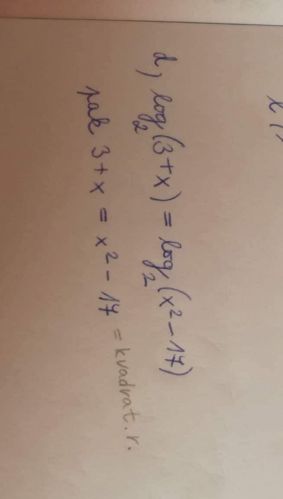 d, log₂(3+x) = log₂(x²-17)
pak 3+x = x²-17 = kvadrat. r.